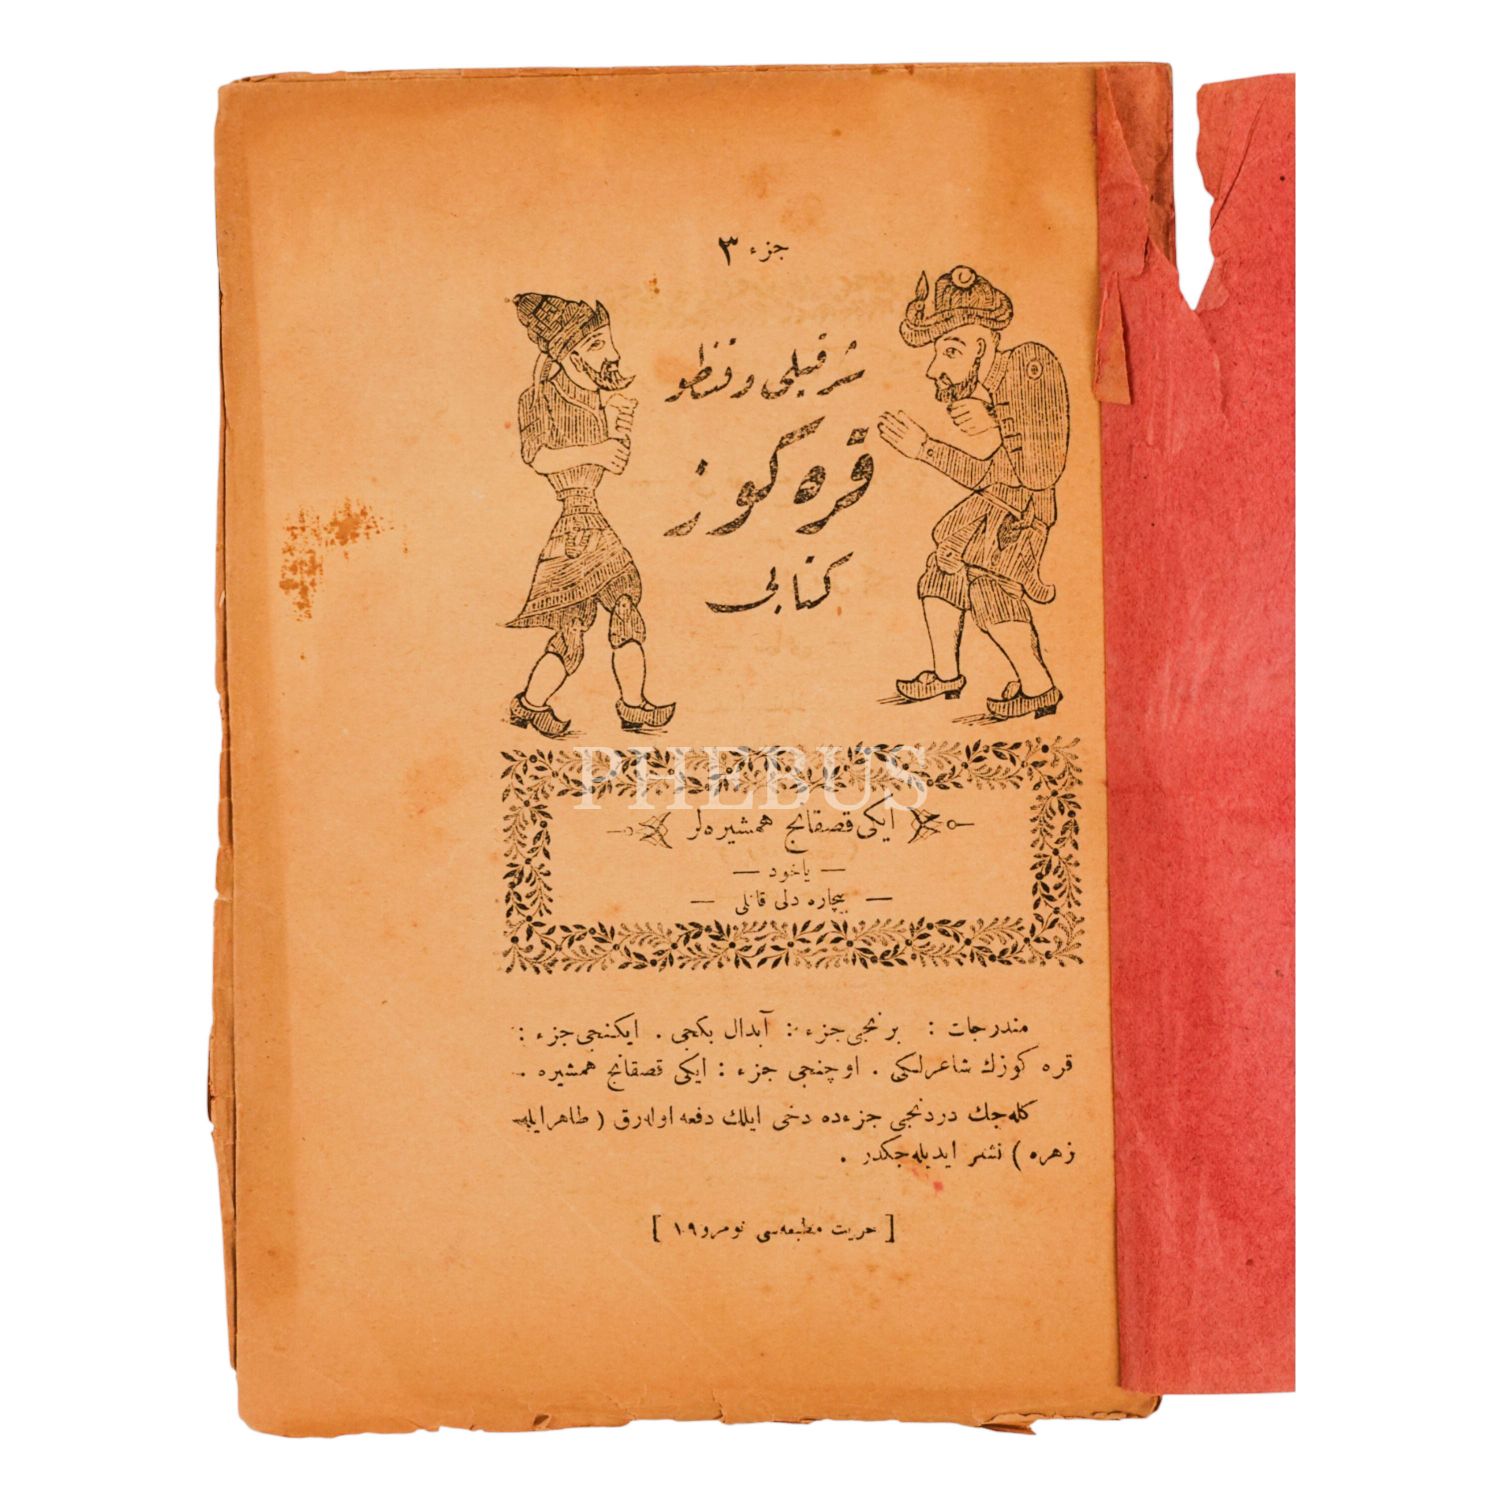 جزء ٣
شرقیلی و قنطو
قره كوز
كتابی
PHEBUS
ایكی قصقانج همشیره‌لر
— یاخود —
— بیچاره دلی قانلی —
مندرجات : برنجی جزء : آبدال بكجی . ایكنجی جزء :
قره كوزك شاعرلكی . اوچنجی جزء : ایكی قصقانج همشیره .
كله‌جك دردنجی جزءده دخی ایلك دفعه اوله‌رق ( طاهرایله
زهره ) نشر ایدیله‌جكدر .
[ حریت مطبعه‌سی نومرو ١٠٩ ]